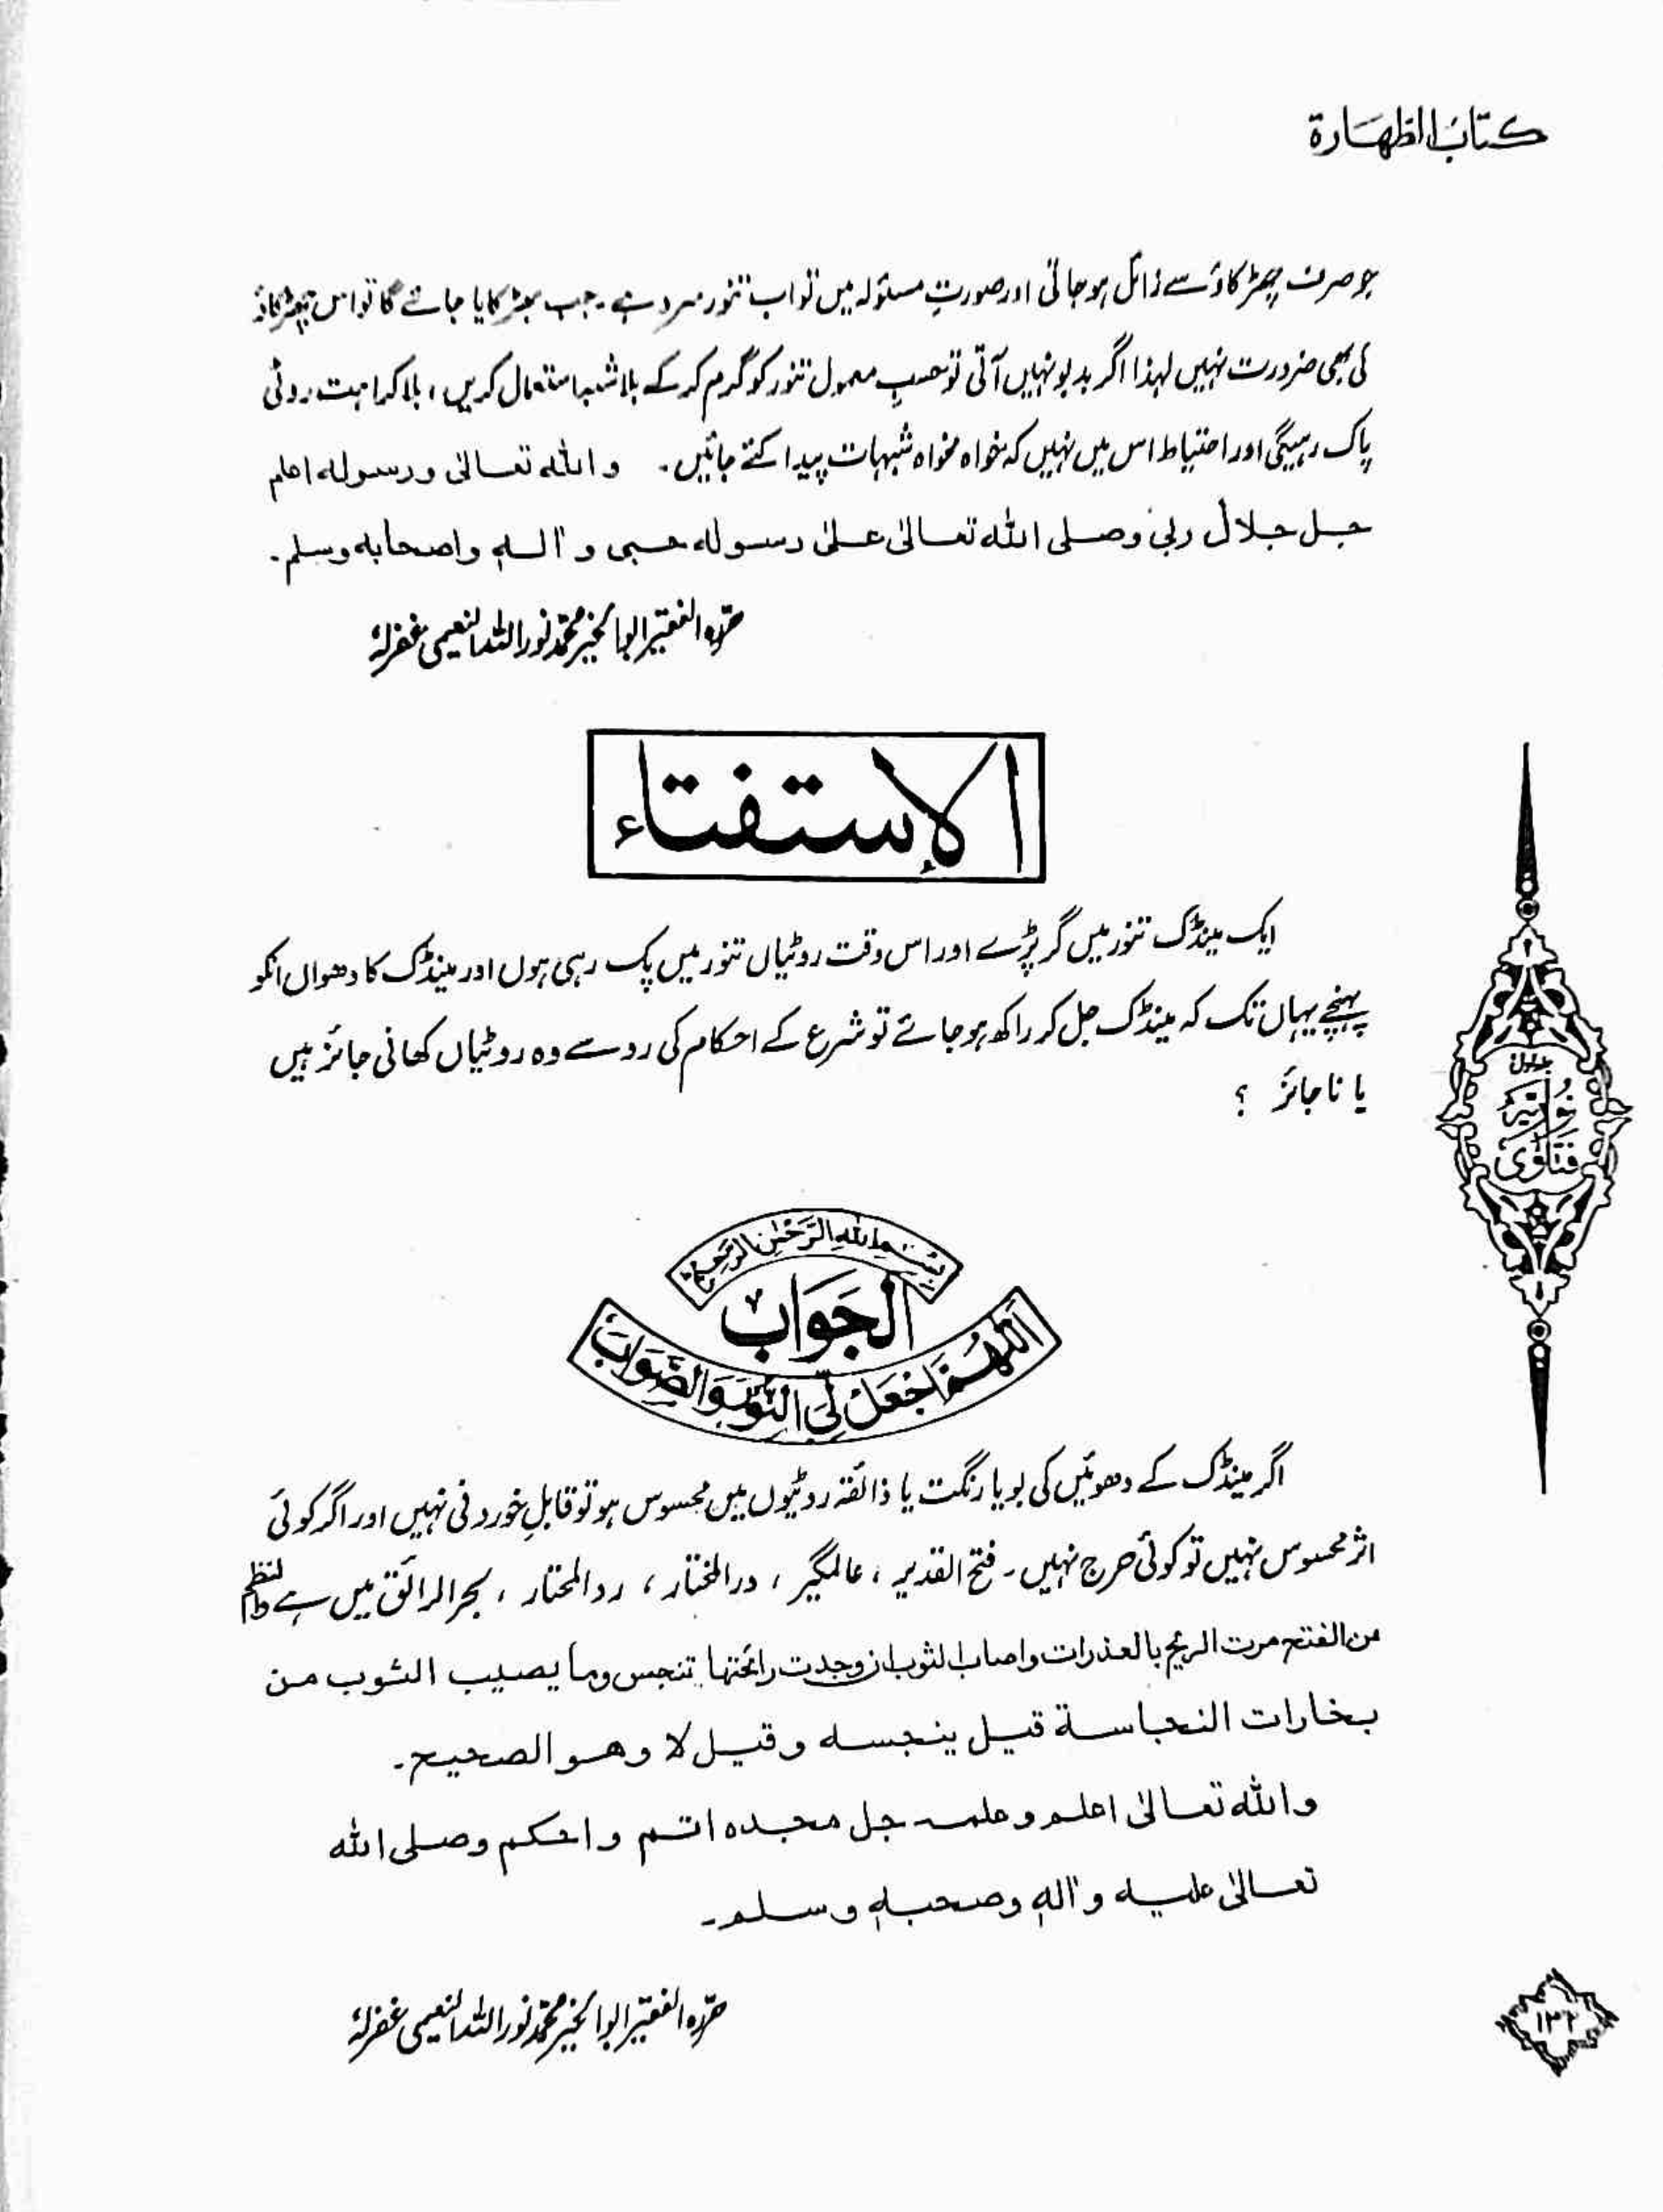 كتاب الطهارة
جو صرف چھڑکاؤ سے زائل ہو جاتی اور صورتِ مسئولہ میں تو اب تنور سرد ہے۔ جب بھڑکایا جائے گا تو اس چھڑکاؤ
کی بھی ضرورت نہیں لہذا اگر بدبو نہیں آتی تو حسبِ معمول تنور کو گرم کر کے بلا شبہ استعمال کریں، بلا کراہت روٹی
پاک رہیگی اور احتیاط اس میں نہیں کہ خواہ مخواہ شبہات پیدا کئے جائیں۔ والله تعالىٰ ورسوله اعلم
جل جلال ربی وصلى الله تعالىٰ علىٰ رسوله حبی وآلهٖ واصحابه وسلم۔
حرّرہ الفقیر ابو الخیر محمد نور اللہ النعیمی غفرلہٗ
الإستفتاء
ایک مینڈک تنور میں گر پڑے اور اس وقت روٹیاں تنور میں پک رہی ہوں اور مینڈک کا دھواں انکو
پہنچے یہاں تک کہ مینڈک جل کر راکھ ہو جائے تو شرع کے احکام کی رو سے وہ روٹیاں کھانی جائز ہیں
یا ناجائز ؟
جلد اول
نوریہ
فتاویٰ
بسم الله الرحمٰن الرحيم
الجَوَاب
اَللّٰهُمَّ اجْعَلْ لِّيَ النُّوْرَ وَالصَّوَابَ
اگر مینڈک کے دھوئیں کی بو یا رنگت یا ذائقہ روٹیوں میں محسوس ہو تو قابلِ خوردنی نہیں اور اگر کوئی
اثر محسوس نہیں تو کوئی حرج نہیں۔ فتح القدیر، عالمگیر، درالمختار، ردالمحتار، بحرالرائق میں ہے والنظم
من الفتح مرت الريح بالعذرات واصاب الثوب ان وجدت رائحتها تنجس وما يصيب الثوب من
بخارات النجاسة قيل ينجسه وقيل لا وهو الصحيح۔
والله تعالىٰ اعلم وعلمه جل مجده اتم واحكم وصلى الله
تعالىٰ عليه وآلهٖ وصحبهٖ وسلم۔
حرّرہ الفقیر ابو الخیر محمد نور اللہ النعیمی غفرلہٗ
۱۳۲